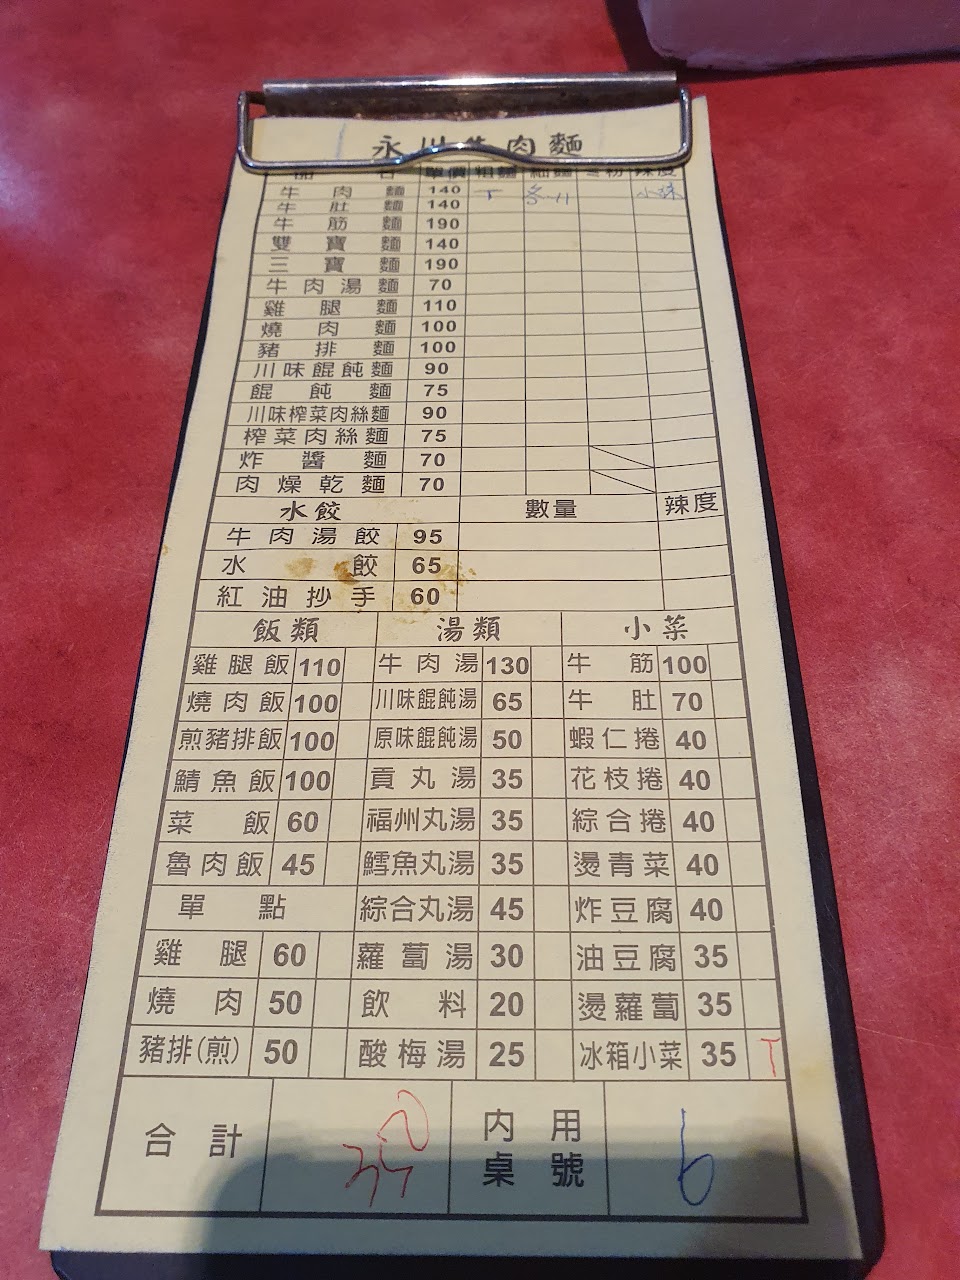 永川牛肉麵
品名 單價 粗麵 細麵 冬粉 辣度
牛肉麵 140 小辣
牛肚麵 140
牛筋麵 190
雙寶麵 140
三寶麵 190
牛肉湯麵 70
雞腿麵 110
燒肉麵 100
豬排麵 100
川味餛飩麵 90
餛飩麵 75
川味榨菜肉絲麵 90
榨菜肉絲麵 75
炸醬麵 70
肉燥乾麵 70
水餃 數量 辣度
牛肉湯餃 95
水餃 65
紅油抄手 60
飯類 湯類 小菜
雞腿飯 110 牛肉湯 130 牛筋 100
燒肉飯 100 川味餛飩湯 65 牛肚 70
煎豬排飯 100 原味餛飩湯 50 蝦仁捲 40
鯖魚飯 100 貢丸湯 35 花枝捲 40
菜飯 60 福州丸湯 35 綜合捲 40
魯肉飯 45 鱈魚丸湯 35 燙青菜 40
單點 綜合丸湯 45 炸豆腐 40
雞腿 60 蘿蔔湯 30 油豆腐 35
燒肉 50 飲料 20 燙蘿蔔 35
豬排(煎) 50 酸梅湯 25 冰箱小菜 35 T
合計 內用 6
桌號